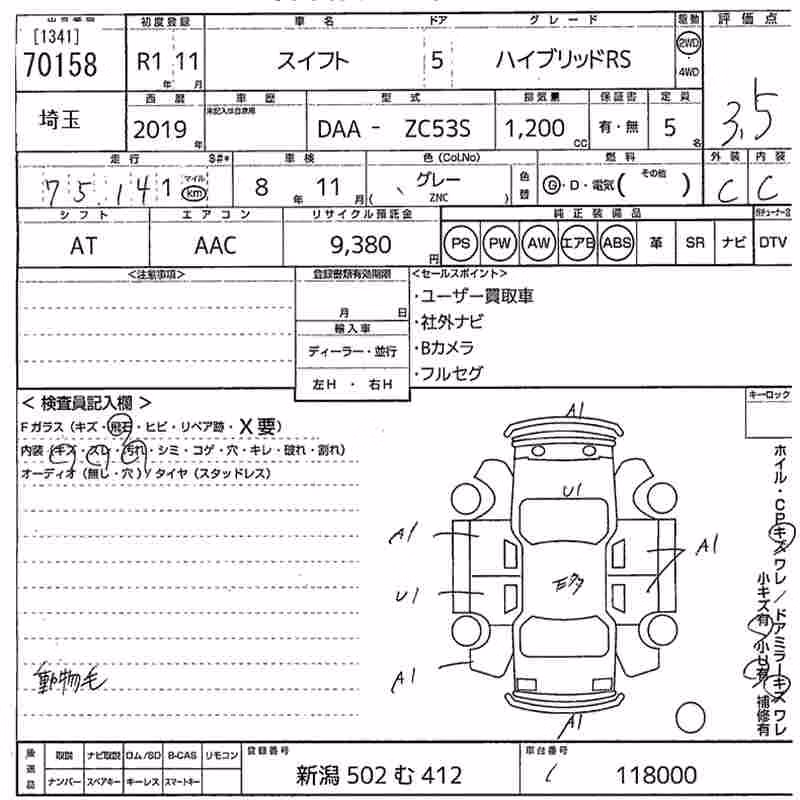 [1341]
70158
初度登録
R1 11
年 月
車名
スイフト
ドア
5
グレード
ハイブリッドRS
駆動
2WD
・
4WD
評価点
3.5
埼玉
西暦
2019 年
車歴
未記入は自家用
型式
DAA - ZC53S
排気量
1,200 CC
保証書
有・無
定員
5 名
走行
75,141
マイル
km
車検
8 年 11 月
色 (Col.No)
グレー
( ZNC )
色替
燃料
G・D・電気( その他 )
外装
C
内装
C
シフト
AT
エアコン
AAC
リサイクル預託金
9,380 円
純正装備品
PS PW AW エアB ABS 革 SR ナビ DTV
<注意事項>
登録書類有効期限
月 日
輸入車
ディーラー・並行
左H ・右H
<セールスポイント>
・ユーザー買取車
・社外ナビ
・Bカメラ
・フルセグ
< 検査員記入欄 >
Fガラス (キズ・飛石・ヒビ・リペア跡・X要)
内装 (キズ・スレ・汚れ・シミ・コゲ・穴・キレ・破れ・割れ)
オーディオ (無し・穴) / タイヤ (スタッドレス)
動物毛
キーロック
A1
U1
A1
A1
U1
A1
A1
ホイル・CPキズワレ / ドアミラーキズワレ
小キズ有 小U有 補修有
後送品
取説 ナビ取説 ロム/SD B-CAS リモコン
ナンバー スペアキー キーレス スマートキー
登録番号
新潟 502 む 412
車台番号
118000